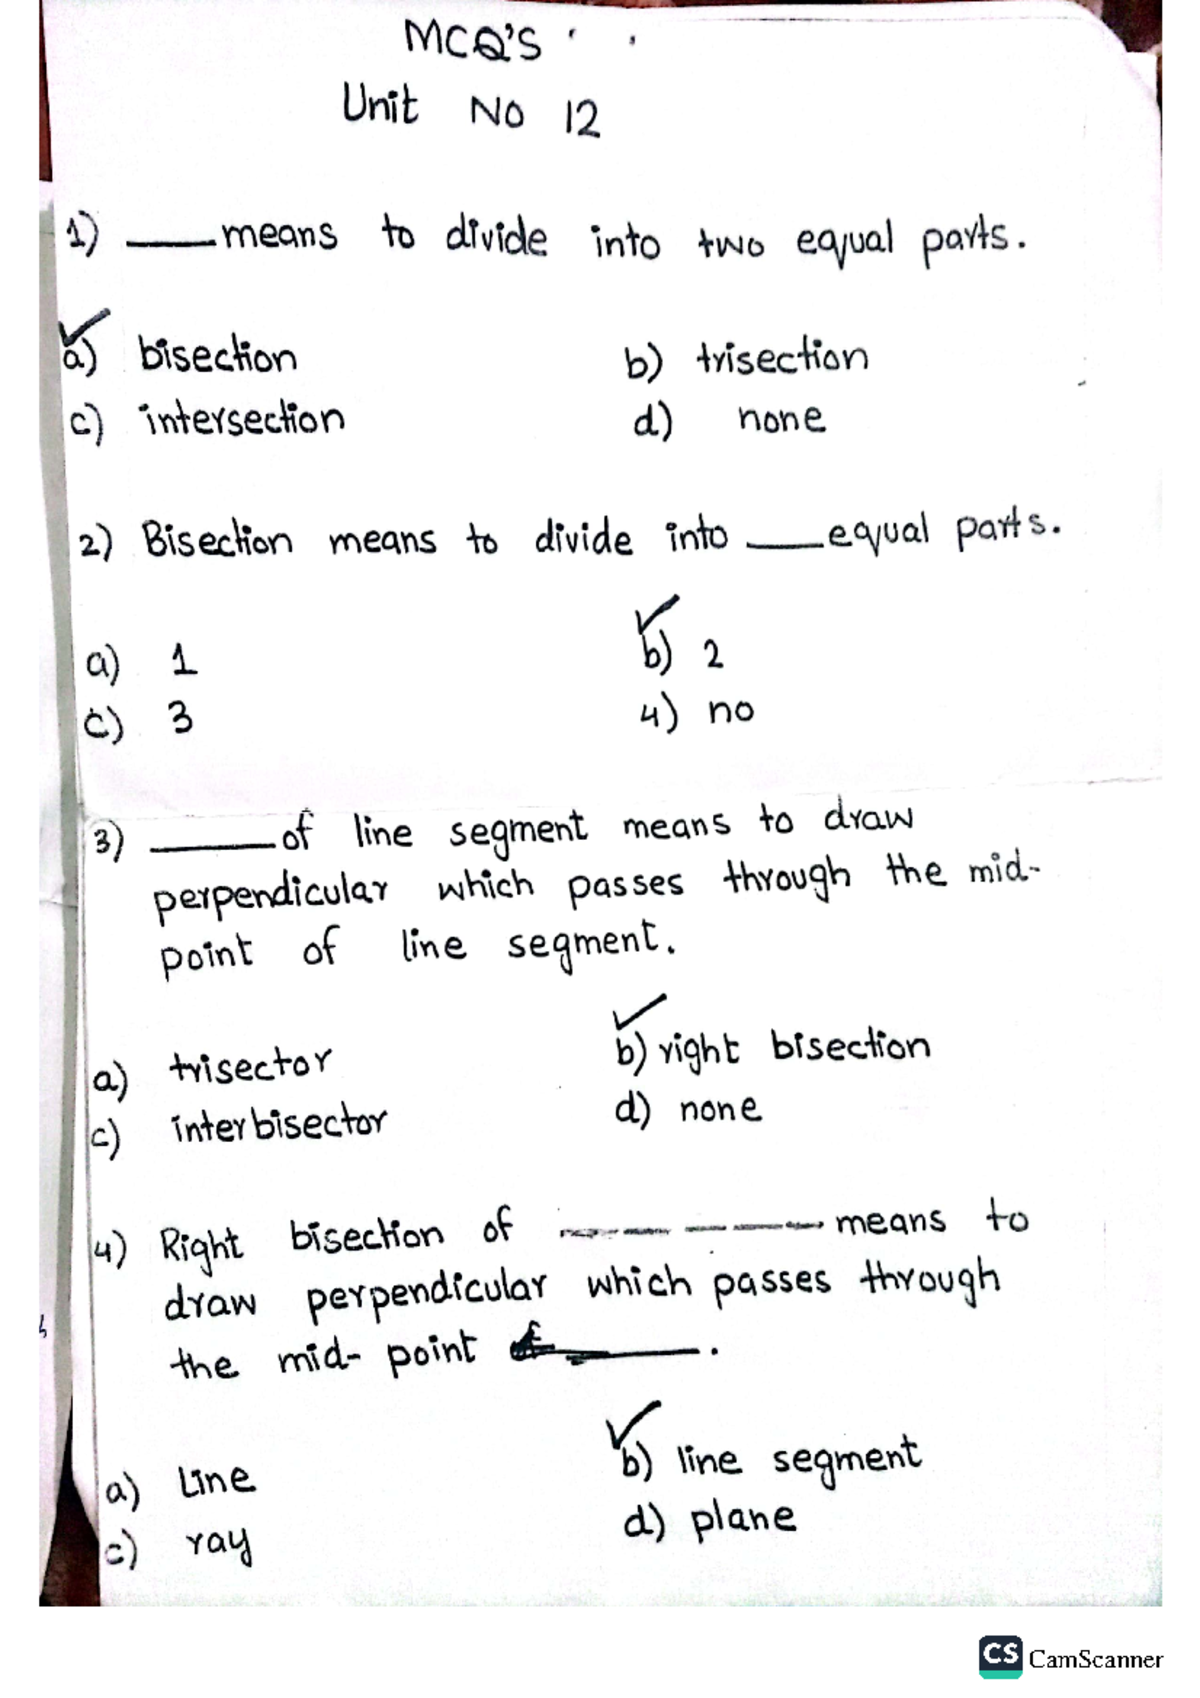 MCQ'S
Unit No 12
1) ____ means to divide into two equal parts.
a) bisection b) trisection
c) intersection d) none
2) Bisection means to divide into ____ equal parts.
a) 1 b) 2
c) 3 4) no
3) ____ of line segment means to draw
perpendicular which passes through the mid-
point of line segment.
a) trisector b) right bisection
c) interbisector d) none
4) Right bisection of ____ means to
draw perpendicular which passes through
the mid-point ____.
a) Line b) line segment
c) ray d) plane
CS CamScanner